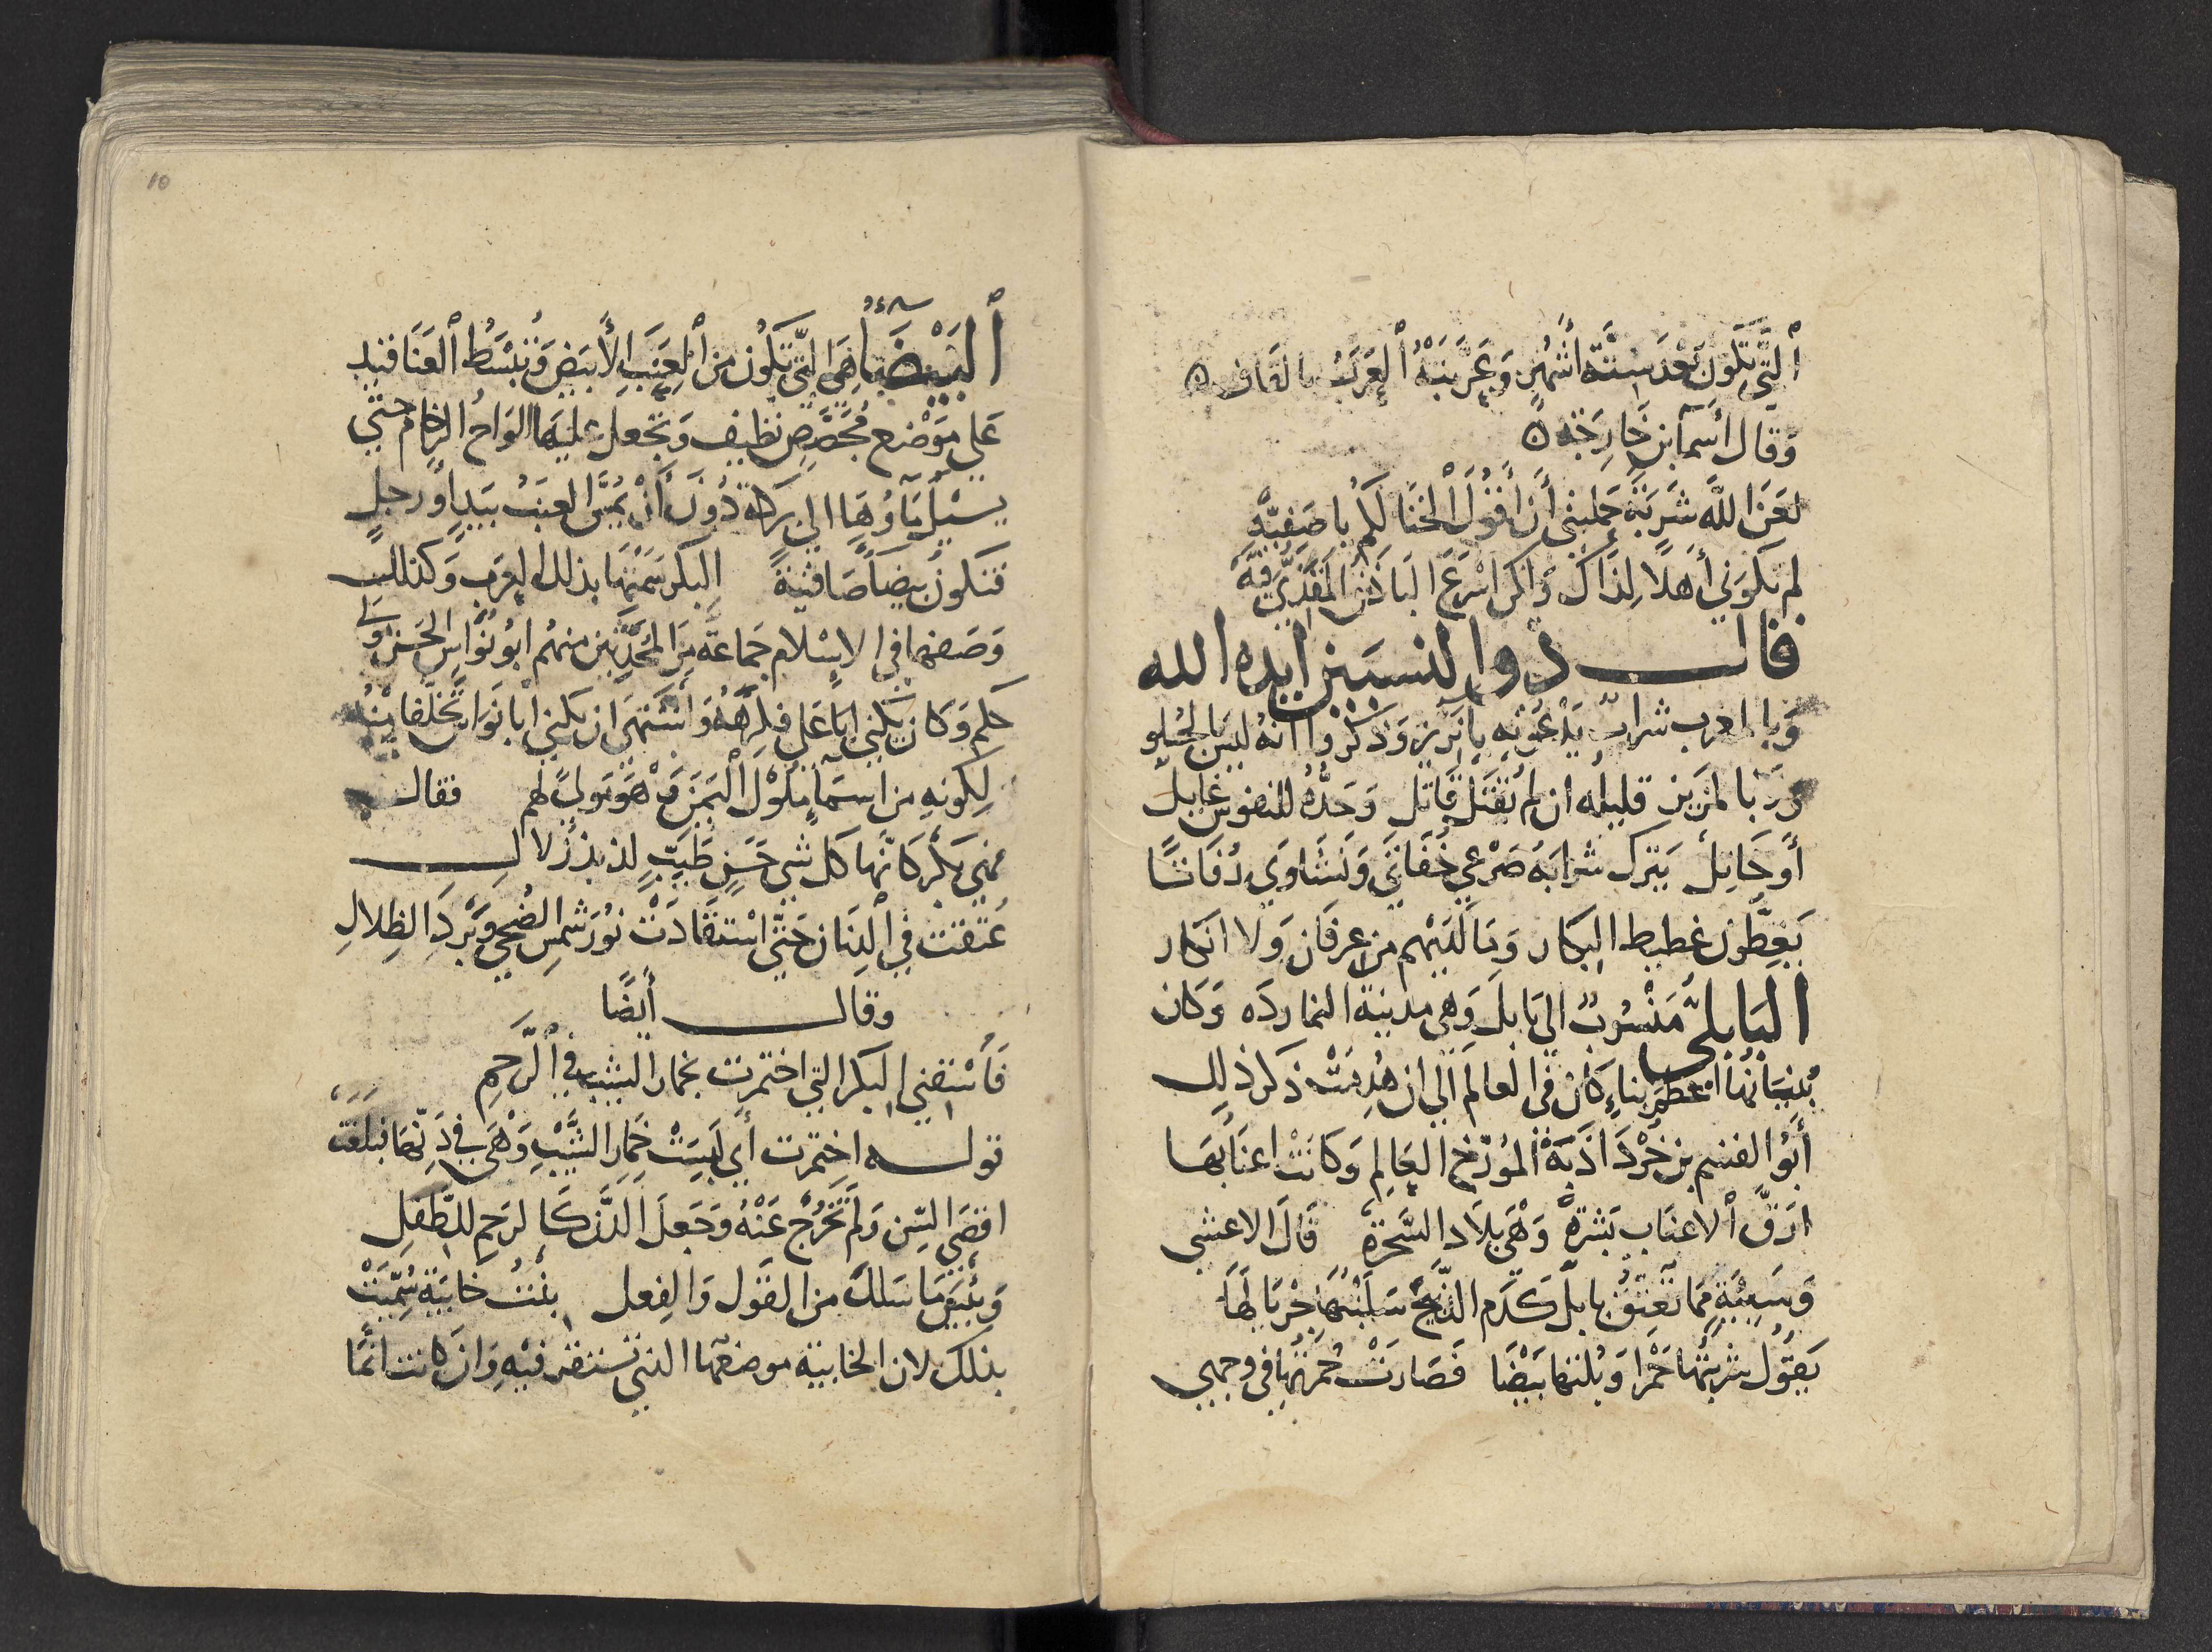 ٱلَّتِي تَكُونُ بَعْدَ سِتَّةِ أَشْهُرٍ وَعَرَّبَتْهُ ٱلْعَرَبُ بالقاف ه
وَقال أسمآ بن خَارِجَة ه
لَعَنَ اللَّه شَرْبَةً حَمَلتني أَنْ أَقُولَ ٱلْخَنَا لَكُم يا صَفِيَّه
لم تكوني أَهْلاً لِذَاكَ وَلكن اسْرَعَ البَاذَقُ المَقَذِّيُّ فيَّهْ
قال ذوا لنسبين ايده الله
وَبالمغرب شرابٌ يَدْعُونه يا نزيز وَذكروا انه للبين الحلو
وَرَبا لمزيز قليله ان لم يُقْتَل قَاتل وَحَدُّهُ للنفوس غابل
أو حَابل يَترك شرابَهُ صَرْعي خُفَاتَي وَنَشَاوَي رُفَاتًا
يَغِطّون غطيط البكار وَمَا لَدَيْهم من عرفَان وَلا انكار
البَابليُّ مَنْسُوبٌ الى بَابلَ وَهي مدينة النمارده وَكان
بُنْيَانُهَا اعْظَمَ بِناءٍ كَانَ في العالَم الي ان هُدِمَتْ ذكر ذلك
أَبُو القسم بن خُرْدَاذَبَهْ المُؤرّخ العَالِم وَكَانَتْ اعنَابُهَا
ارَقَّ ٱلاعنَاب بَشَرَةً وَهْيَ بلاد السَّحَرَة قَالَ الاعشى
وَسَبِيْئَةٍ مما تُعَتِّقُ بابل كَدَم الذَّبِيح سَلَبْتُهَا جِرْيَالَهَا
يَقُوُل شَرِبْتُهَا حَمْرا وَبُلتها بَيْضَا فَصَارَتْ حُمْرتُهَا في وجهي
10
ٱلبَيْضَآءُ هِيَ الَّتي تكُون من ٱلعِنَبِ الأبيَض وَتُبْسَطُ ٱلعَنَاقيد
عَلي مَوْضع مُجَصَّصٍ نظيف وَتجعل عَليهَا الوَاحُ الرخام حتي
يَسيْلَ مَآؤُهَا الي بركة دُونَ أَنْ يُمَسَّ العِنَبُ بيَدٍ أو رجلٍ
فتكون بيضآ صَافيَةً البكر سَمَّتْهَا بذلك العَرَب وَكذلك
وَصَفهَا في الاسْلام جَمَاعَةٌ مِنَ المُحدَثين منهُم ابُو نُوَّاس الحَسَن بن
حكم وَكانَ يُكني ابا عَلي فكرهَهُ وَاشتَهَى ان يكني ابا نوَاس تَخَلُّفا مِنْهُ
لِكونه من اسمآ مُلُوْكِ الْيَمَن وَهْوَ مَولَىً لهم فقال
فهي بكْر كَأَنّهَا كل شي حَسَنٍ طَيِّبٍ لذيذ زلال
عُتقت في الدِّنَان حَتَّى اسْتَفَادَتْ نُورَ شمس الضُحَى وَبَرْدَ الظِلالِ
وقال أيضًا
فَأَسْقني البكر التي اختمرت بخمار الشيب في ٱلرَّحِمِ
قوله اختمرت أي لَبِسَتْ خِمَارَ الشَّيْبِ وَهْيَ في دَنّهَا فبَلَغَت
اقصَى السِّن وَلَم تَخْرُجْ عَنْهُ وَجَعَلَ الدَّن كَالرَحِم للطِّفل
وَبئسَ مَا سَلك من القَول وَالفِعل بنْتُ خابيَة سُمِّيَتْ
بذلك لان الخابية موضعها الذي تستقر فيْهِ وَان كانت انّمَا